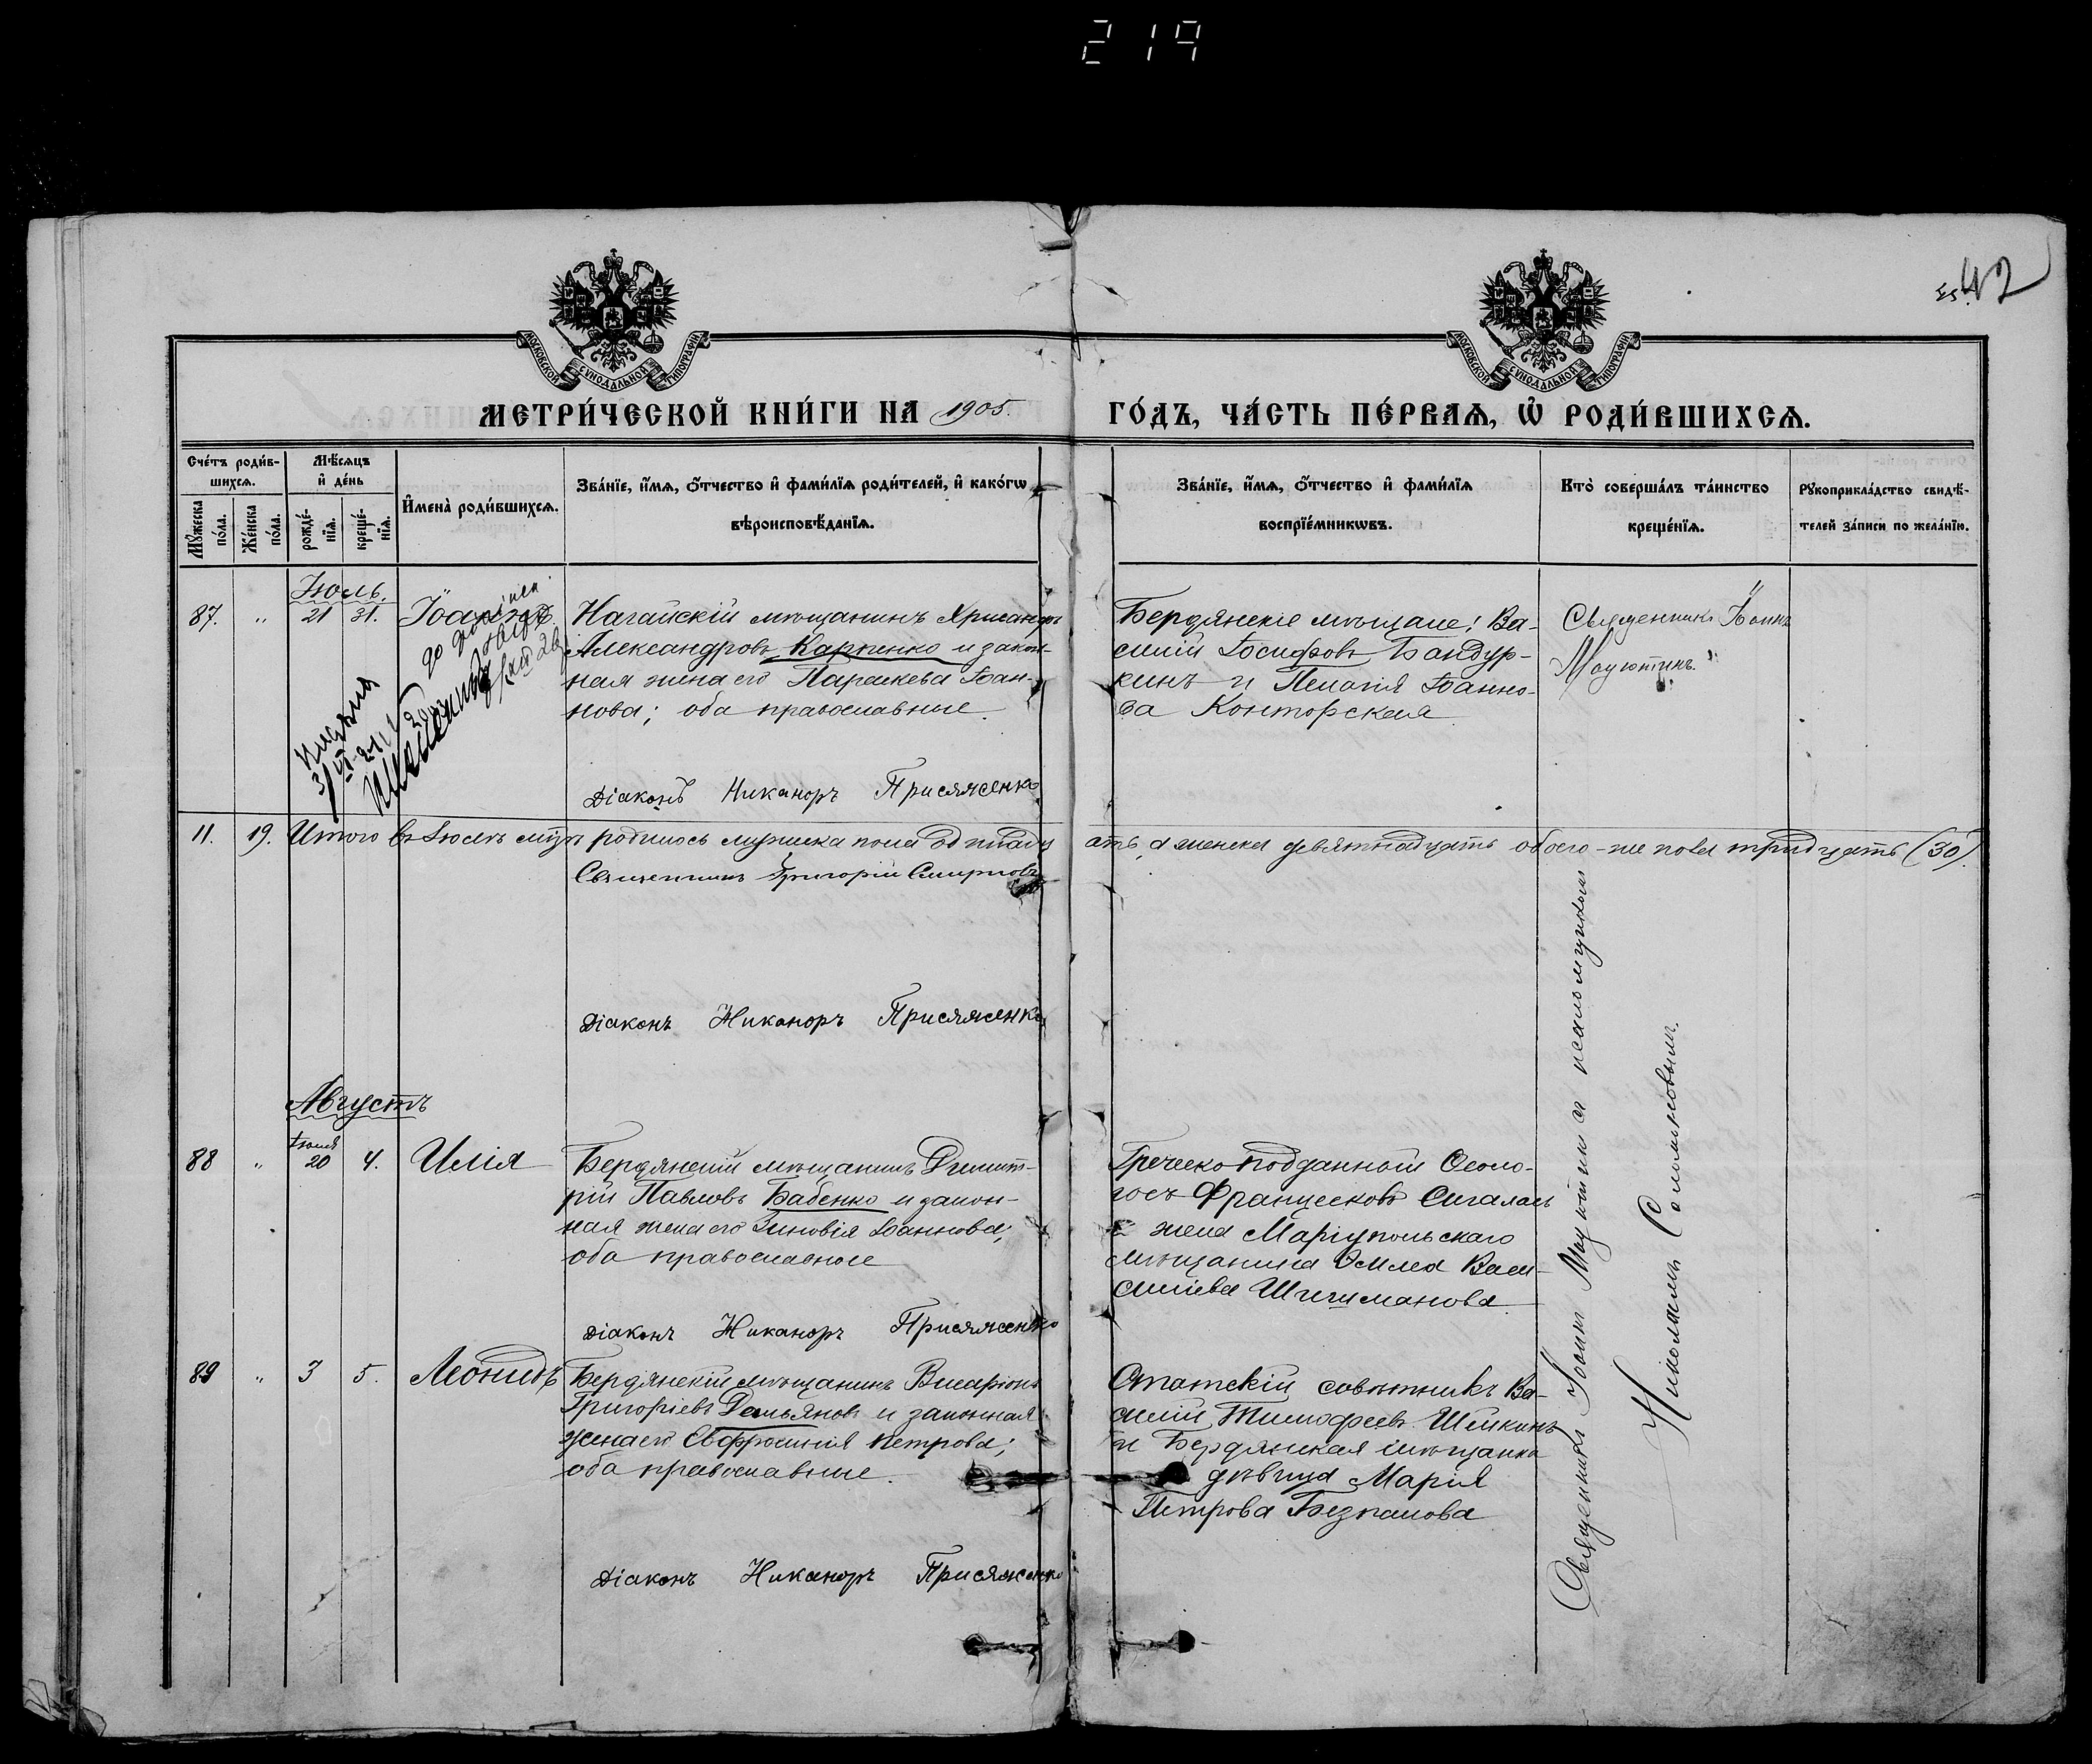 219
42
МОСКОВСКОЙ СѴНОДАЛЬНОЙ ТИПОГРАФІИ
МОСКОВСКОЙ СѴНОДАЛЬНОЙ ТИПОГРАФІИ
МЕТРИ́ЧЕСКОЙ КНИ́ГИ НА 1905. ГО́ДЪ, ЧА́СТЬ ПЕ́РВАѦ, Ѽ РОДИ́ВШИХСѦ.
Сче́тъ роди́в-
шихсѧ.
Мꙋ́жеска по́ла.
Же́нска по́ла.
Мѣ́сѧцъ
и҆ де́нь
рожде́-
нїѧ.
креще́-
нїѧ.
И҆мена̀ роди́вшихсѧ.
Зва́нїе, и҆́мѧ, ѻ҆́тчество и҆ фами́лїѧ роди́телей, и҆ како́гѡ
вѣроисповѣ́данїѧ.
Зва́нїе, и҆́мѧ, ѻ҆́тчество и҆ фами́лїѧ
воспрїе́мникѡвъ.
Кто̀ соверша́лъ та́инство
креще́нїѧ.
Рꙋкоприкла́дство свидѣ́-
телей за́писи по жела́нїю.
Іюль.
87. " 21 31. Іоаннъ
Нагайскій мѣщанинъ Хрисанѳъ
Александровъ Карпенко и закон-
ная жена его Параскева Іоан-
нова; оба православные.
Діаконъ Никаноръ Присяженко
Бердянскіе мѣщане: Ва-
силій Іосифовъ Бандур-
кинъ и Пелагія Іоанно-
ва Конторская
Священникъ Іоаннъ
11. 19. Итого въ Іюлѣ родилось мужеска пола одиннадц
ать, а женска девятнадцать обоего-же пола тридцать (30).
Священникъ Григорій Смирновъ
Діаконъ Никаноръ Присяженко
Августъ
88 " Іюля 20 4. Илія
Бердянскій мѣщанинъ Димит-
рій Павловъ Бабенко и закон-
ная жена его Зиновія Іоаннова;
оба православные
Діаконъ Никаноръ Присяженко
Греческо-подданный
Францисковъ Сигаласъ
и жена Маріупольскаго
мѣщанина Васи-
ліева Шигиманова
89 " 3 5. Леонидъ
Бердянскій мѣщанинъ Висаріонъ
Григоріевъ Демьяновъ и законная
жена его Евфросинія Петрова;
оба православные.
Діаконъ Никаноръ Присяженко
Статскій совѣтникъ Ва-
силій Тимофеевъ Шишкинъ
и Бердянская мѣщанка
дѣвица Марія
Петрова Безпалова
Священникъ Іоаннъ
Николаемъ